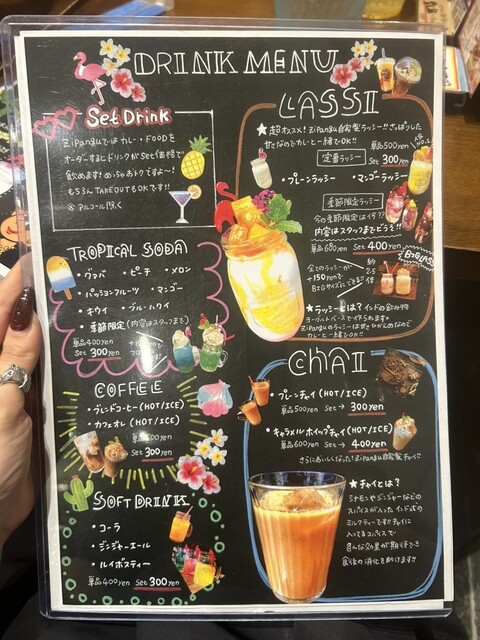 DRINK MENU
Set Drink
ZiPanguではカレー・FOODを
オーダーするとドリンクがSet価格で
飲めます!めっちゃおトクですよ〜!
もちろんTAKEOUTもOKです!!
※アルコール除く
TROPICAL SODA
・グァバ ・ピーチ ・メロン
・パッションフルーツ ・マンゴー
・キウイ ・ブルーハワイ
・季節限定(内容はスタッフまで)
単品400yen
Set 300yen
COFFEE
・ブレンドコーヒー(HOT/ICE)
・カフェオレ(HOT/ICE)
Set 300yen
SOFT DRINK
・コーラ
・ジンジャーエール
・ルイボスティー
単品400yen Set 300yen
LASSI
★超オススメ!ZiPangu自家製ラッシー!!さっぱりした
甘さなのでカレーと一緒でOK!!
定番ラッシー
単品500yen
Set 300yen
・プレーンラッシー ・マンゴーラッシー
季節限定ラッシー
今の季節限定は何??
内容はスタッフまでどうぞ!!
単品600yen Set 400yen
全てのラッシーが
+150yenで
BiGサイズにできます
約
2.5
倍
★ラッシーとは?インドの飲み物
ヨーグルトベースで作られます。
ZiPanguのラッシーは甘さひかえめなので
カレーと一緒でOK!!
CHAI
・プレーンチャイ(HOT/ICE)
単品500yen Set → 300yen
・キャラメルホイップチャイ(HOT/ICE)
単品600yen Set → 400yen
さらにおいしくなった!ZiPangu自家製チャイ!!
★チャイとは?
シナモンやジンジャーなどの
スパイスが入ったインド式の
ミルクティーです!!チャイに
入ってるスパイスで
色んな効果が期待でき
食後の消化を助けます!!